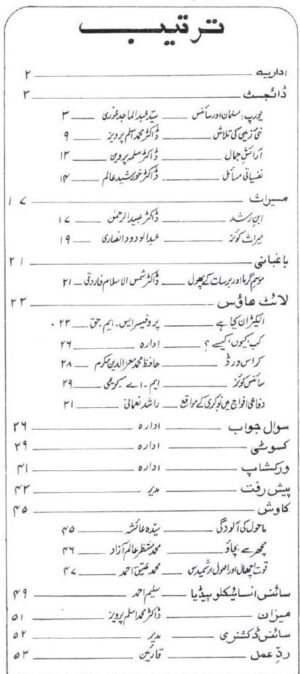 ترتیب
اداریہ ۲
ڈائجسٹ ۳
یورپ، مسلمان اور سائنس سید عبدالماجد غوری ۳
نئی زمین کی تلاش ڈاکٹر محمد اسلم پرویز ۹
آرائش جمال ڈاکٹر سلمہ پروین ۱۳
نفسیاتی مسائل ڈاکٹر خورشید عالم ۱۴
میراث ۱۷
ابن رشد ڈاکٹر عبیدالرحمن ۱۷
میراث کوئز عبدالودود انصاری ۱۹
باغبانی ۲۱
موسم گرما اور برسات کے پھول ڈاکٹر شمس الاسلام فاروقی ۲۱
لائٹ ہاؤس ۲۳
الیکٹران کیا ہے پروفیسر ایس۔ ایم۔ حق ۲۳
کب کیوں کیسے؟ ادارہ ۲۶
کراس ورڈ حافظ محمد معزالدین مکرم ۲۸
سائنس کوئز ایم۔ اے ۲۹
دفاعی افواج میں نوکری کے مواقع راشد نعمانی ۳۱
سوال جواب ادارہ ۳۶
کسوٹی ادارہ ۳۹
ورکشاپ ادارہ ۴۱
پیش رفت مدیر ۴۳
کاوش ۴۵
ماحول کی آلودگی سیدہ عائشہ ۴۵
مچھر سے بچاؤ محمد منتظر عالم آزاد ۴۶
قوت اچھال اور اصول ارشمیدس محمد عتیق احمد ۴۷
سائنس انسائیکلوپیڈیا سلیم احمد ۴۹
میزان ڈاکٹر محمد اسلم پرویز ۵۱
سائنس ڈکشنری مدیر ۵۲
ردِّ عمل قارئین ۵۳